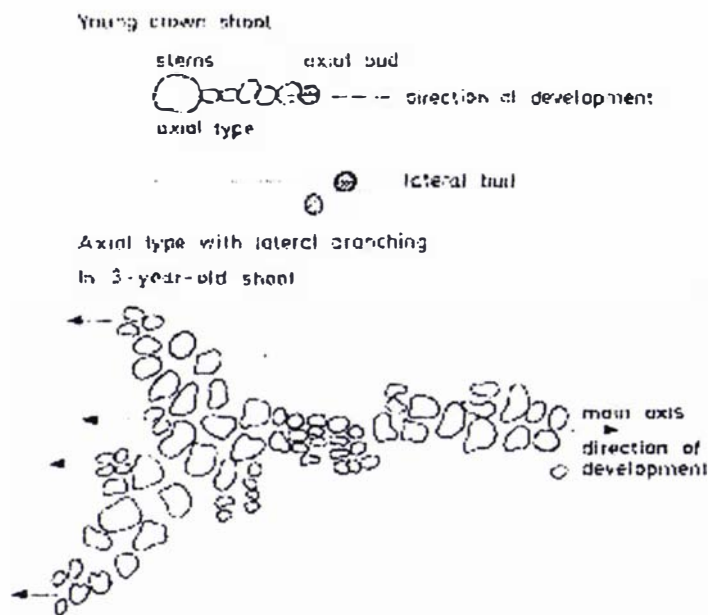 Young crown shoot
stems
axial bud
direction of development
axial type
lateral bud
Axial type with lateral branching
In 3-year-old shoot
main axis
direction of
development